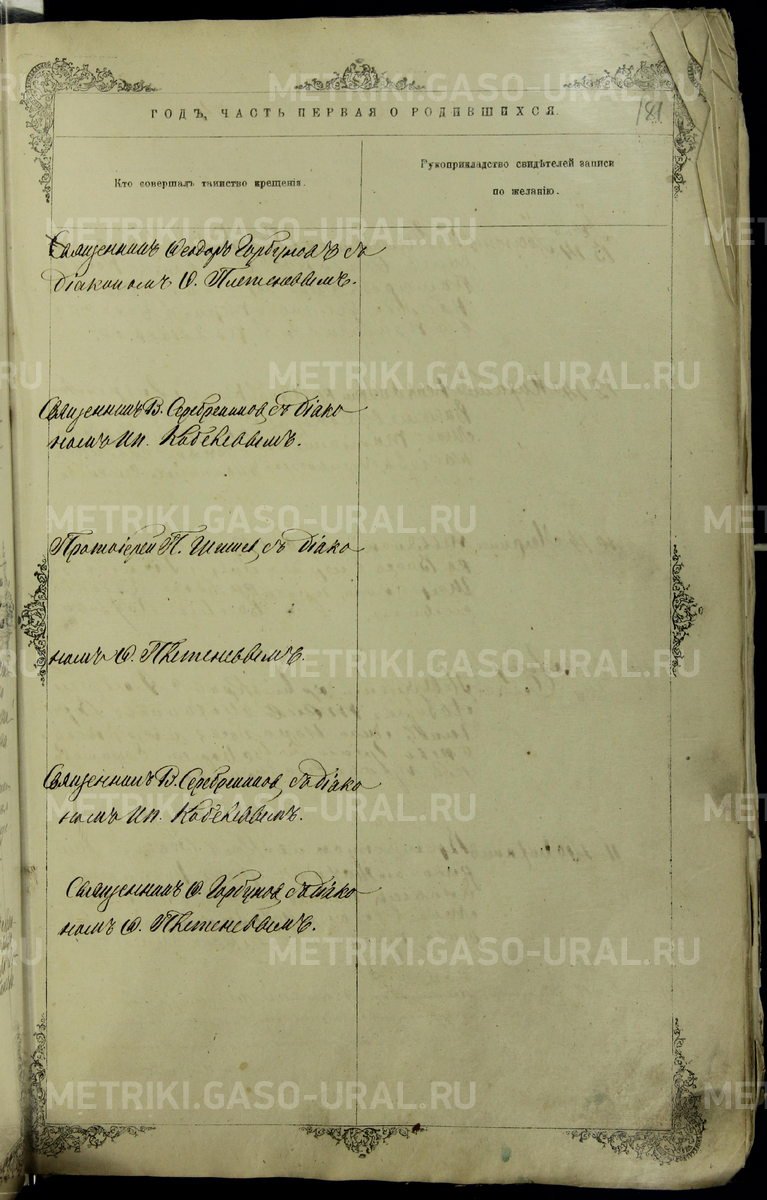 181
ГОДЪ, ЧАСТЬ ПЕРВАЯ О РОДИВШИХСЯ.
Кто совершалъ таинство крещенія.
Рукоприкладство свидѣтелей записи
по желанію.
Священникъ Ѳеодоръ Горбуновъ съ
діакономъ Ѳ. Плетеневымъ.
Священникъ В. Серебренниковъ съ діако
номъ Ип.
Протоіерей П. съ діако
номъ Ѳ. Плетеневымъ.
Священникъ В. Серебренниковъ съ діако
номъ Ип.
Священникъ Ѳ. Горбуновъ съ діако
номъ Ѳ. Плетеневымъ.
METRIKI.GASO-URAL.RU